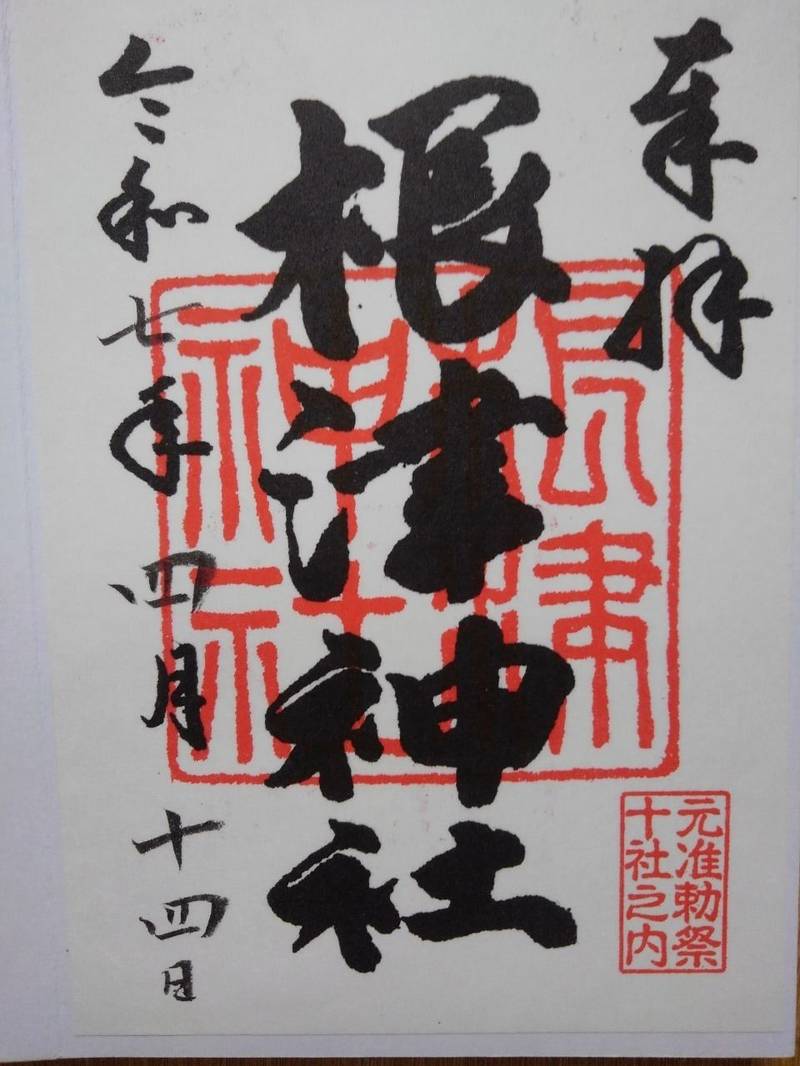 奉拝
根津神社
令和七年四月十四日
根津神社
元准勅祭
十社之内